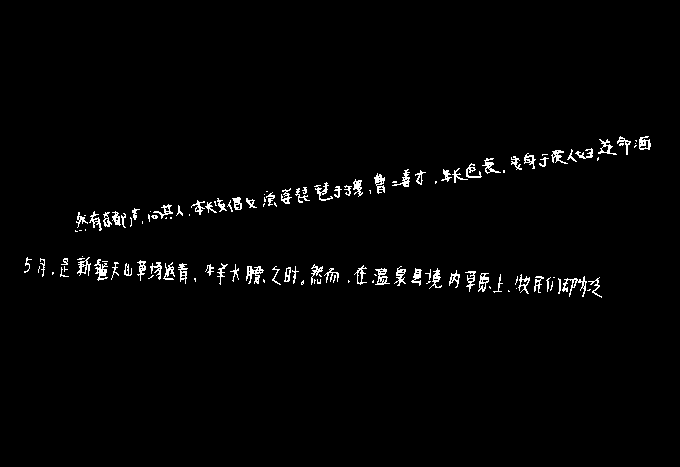 然有京都声,问其人,本长安倡女,尝学琵琶于穆,曹二善才,年长色衰,委身于贾人妇,遂命酒
5月,是新疆天山草场返青、牛羊长膘之时。然而,在温泉县境内草原上,牧民们却